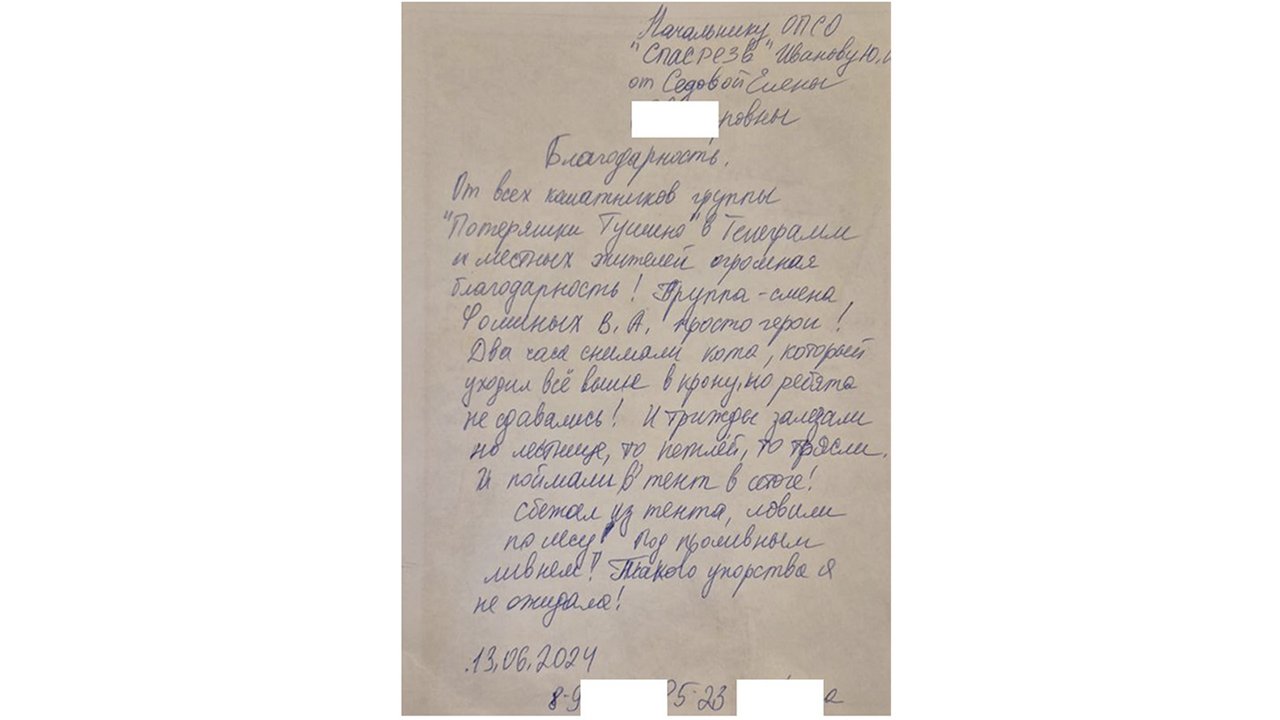 Начальнику ОПСО
"СПАСРЕЗЕРВ" Иванову Ю.
от Седовой Елены
ровны
Благодарность.
От всех кошатников группы
"Потеряшки Тушино" в Телеграмм
и местных жителей огромная
благодарность! Группа-смена
Фоминых В. А. просто герои!
Два часа снимали кота, который
уходил всё выше в крону, но ребята
не сдавались! И трижды залезали
по лестнице, то петлёй, то трясли.
И поймали в тент в итоге!
сбежал из тента, ловили
по лесу! Под проливным
ливнем! Такого упорства я
не ожидала!
13.06.2024
8-9 5-23 а